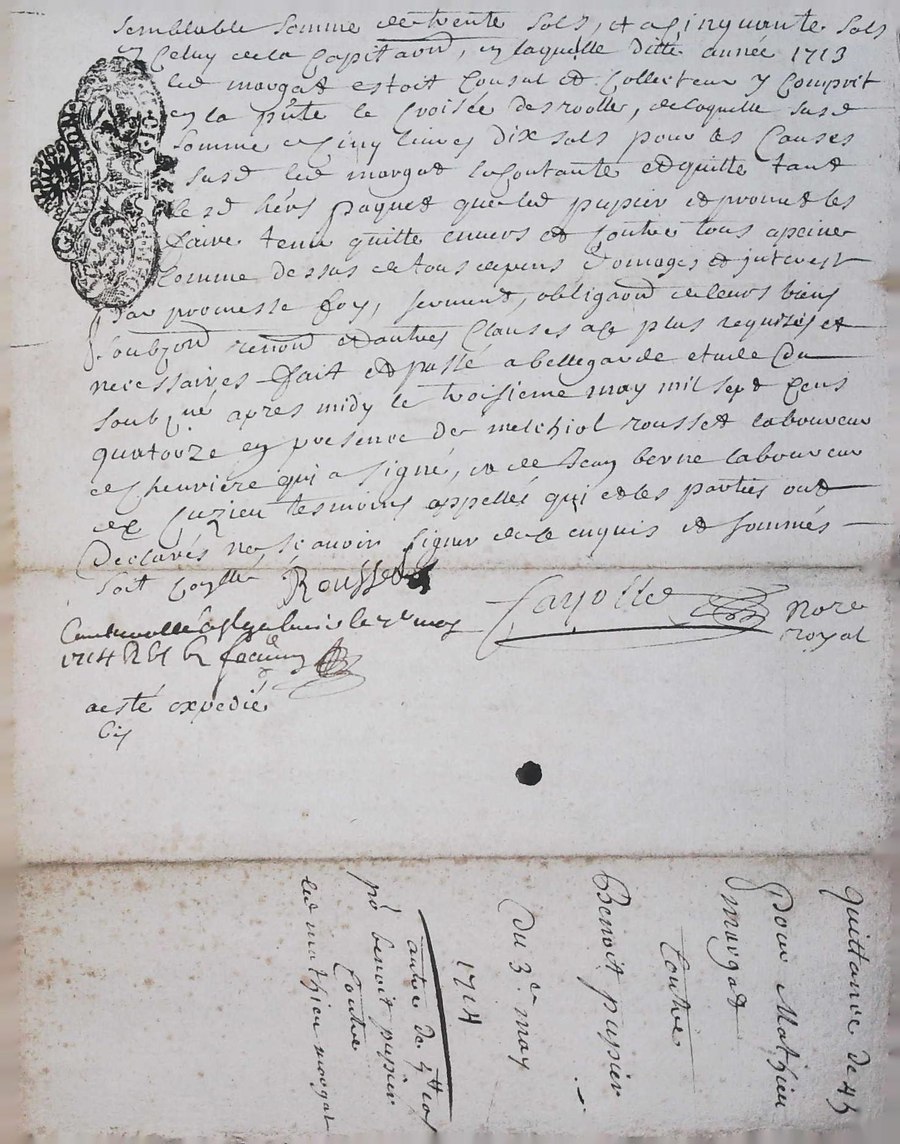 semblable somme de trente sols, et a cinquante sols
celuy de la capitaon, en laquelle ditte année 1713
led margat estoit Consul et Collecteur y Compris
en la pnte le Croisée des roolle, de laquelle susd
somme de cinq livres dix sols pour les Causes
susd led margat se contante et quitte tant
le sd hers paquet que led pupier et promet les
faire tenir quitte envers et contre tous a peine
comme dessus de tous depens domages et interest
Par promesse foy, serment, obligaon de leurs biens
soubzon renon et autres clauses a ce plus requises et
necessaires fait et passé a bellegarde etude du
soubzné apres midy le troisieme may mil sept cens
quatorze en presence de melchiol rousset laboureur
de chevrière qui a signé, et de Jean berne laboureur
de Cuzieu tesmoins appellés qui et les parties ont
declarés ne scavoir signer de ce enquis et sommés
soit
Rousset
Cayotte
Nore
royal
le 7e may
1714
a esté expedié
Quittance de 4
Pour Mathieu
margat
Contre
Benoit pupier
Du 3e may
1714
autre de
po benoit pupier
Contre
led mathieu margat